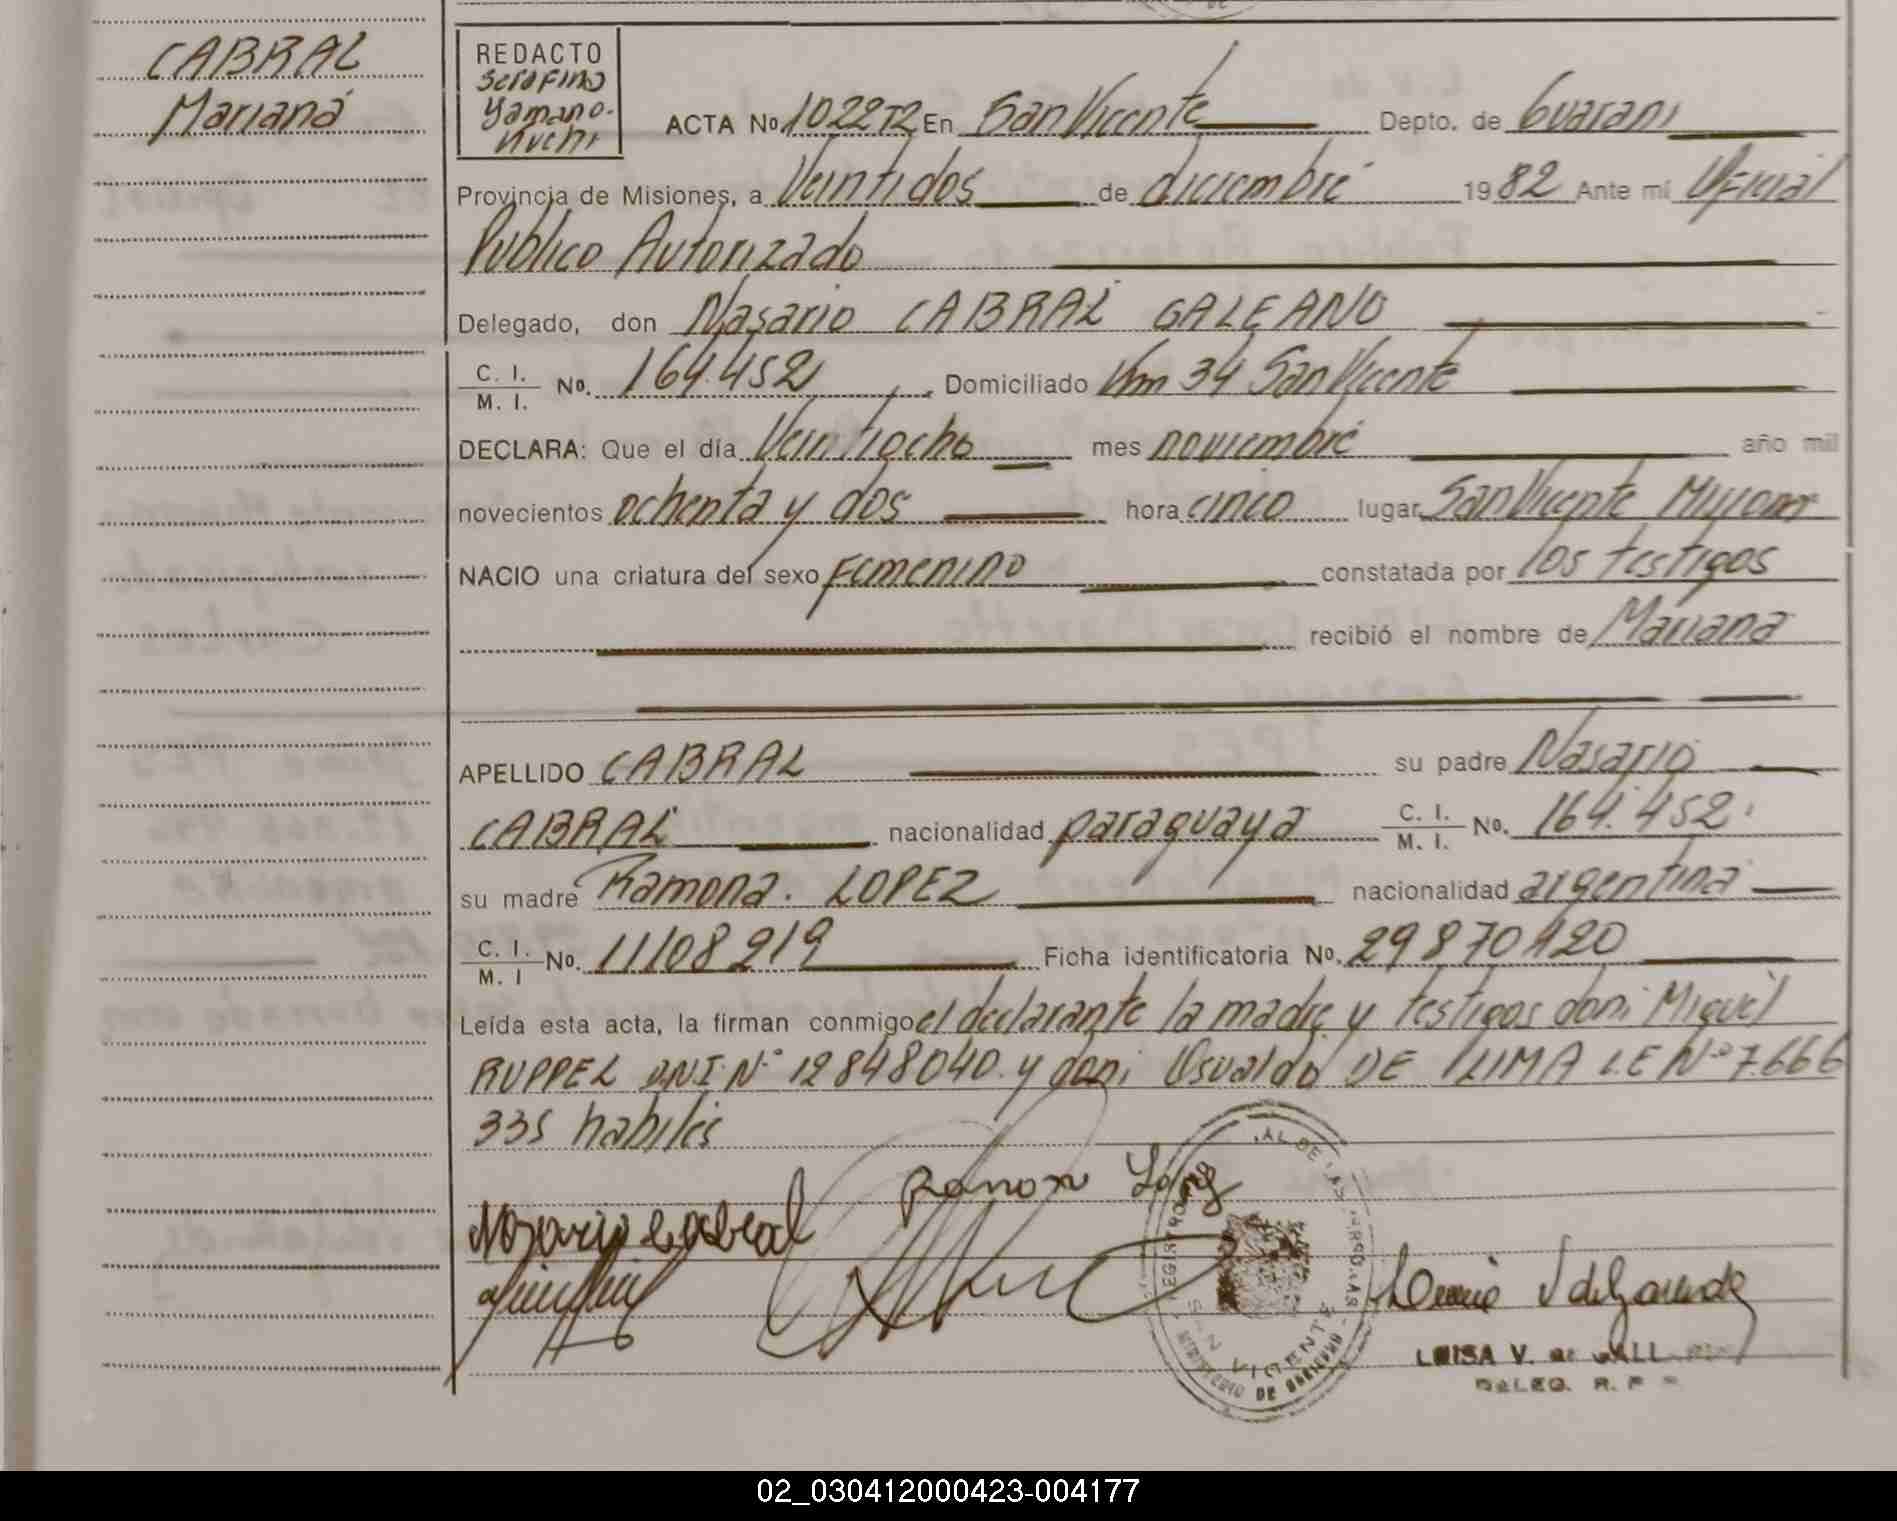 CABRAL
Mariana
REDACTO
Serafino
Yamano-
kuchi
ACTA No. 1022 T2 En San Vicente Depto. de Guarani
Provincia de Misiones, a Veintidos de diciembre 1982 Ante mí Oficial
Publico Autorizado
Delegado, don Nasario CABRAL GALEANO
C. I. / M. I. No. 164.452 Domiciliado Km 34 San Vicente
DECLARA: Que el día Veintiocho mes noviembre año mil
novecientos ochenta y dos hora cinco lugar San Vicente Misiones
NACIO una criatura del sexo Femenino constatada por los testigos
recibió el nombre de Mariana
APELLIDO CABRAL su padre Nasario
CABRAL nacionalidad paraguaya C. I. / M. I. No. 164.452
su madre Ramona. LOPEZ nacionalidad argentina
C. I. / M. I No. 11108219 Ficha identificatoria No. 29870420
Leída esta acta, la firman conmigo el declarante la madre y testigos don: Miguel
RUPPEL D.N.I. Nº 12848040 y don: Osvaldo DE LIMA L.E Nº 7.666
335 habiles
Ramona López
Nazario Cabral
REGISTRO DE LAS PERSONAS
SAN VICENTE
MINISTERIO DE GOBIERNO
LUISA V. de
DELEG. R. P.
02_030412000423-004177